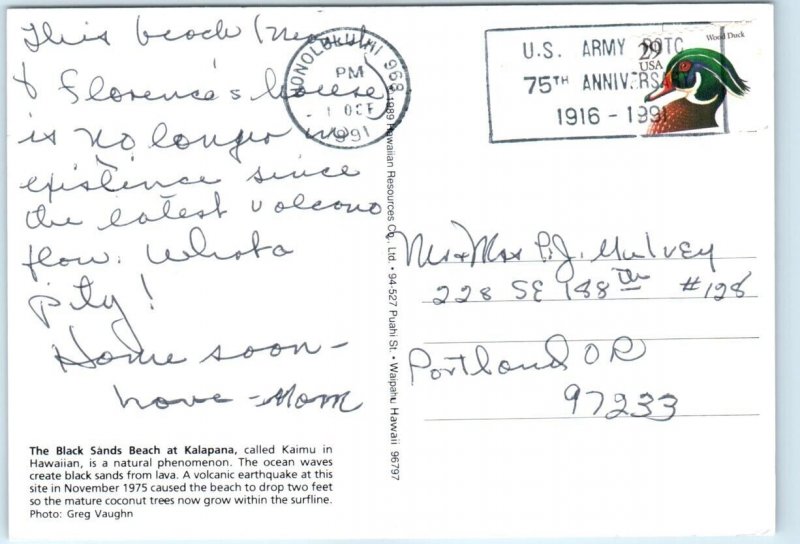 This beach (
& Florence's house
is no longer in
existence since
the latest volcano
flow. Whata
pity!
Home soon-
Love - Mom
The Black Sands Beach at Kalapana, called Kaimu in
Hawaiian, is a natural phenomenon. The ocean waves
create black sands from lava. A volcanic earthquake at this
site in November 1975 caused the beach to drop two feet
so the mature coconut trees now grow within the surfline.
Photo: Greg Vaughn
HONOLULU HI 968
PM
1 OCT
1991
1989 Hawaiian Resources Co., Ltd. • 94-527 Puahi St. • Waipahu Hawaii 96797
U.S. ARMY ROTC
75TH ANNIVERSARY
1916 - 1991
Wood Duck
29
USA
Mr & Mrs P.J. Mulvey
228 SE 188th #128
Portland OR
97233